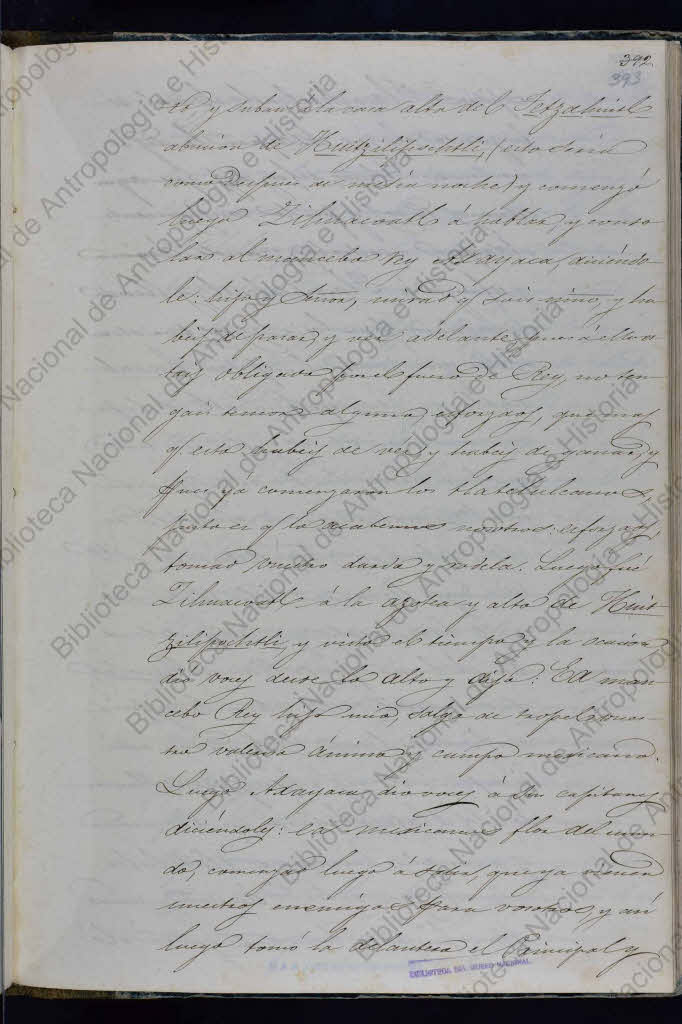 392
393
to, y subamos á la casa alta del Tetzahuitl
abusion de Huitzilipochtli, (esto sería
como despues de media noche) y comenzó
luego Zihuacoatl á hablar, y conso
lar al mancebo Rey Axayaca, diciéndo
le: hijo y Señor, mirad q sois niño, y ha
beis de pasar, y ver adelante, pues á ello es
tais obligado por el fuero de Rey, no ten
gais temor alguno, esforzaos, que mas
q esto habeis de ver, y habeis de ganar, y
pues yá comenzaron los tlatelulcanos,
justo es q lo acabemos nosotros: esforzaos,
tomad vuestro dardo y rodela. Luego fué
Zihuacoatl á la azotea y alto de Huit
zilipochtli, y visto el tiempo y la ocasion
dió voces desde lo alto y dijo: EA man
cebo Rey hijo mio, salga de tropel vues
tro valeroso ánimo, y campo mexicano.
Luego Axayaca dió voces á sus capitanes
diciéndoles: ea mexicanos flor del mun
do, comenzad luego á salir, que ya vienen
nuestros enemigos para vosotros, y así
luego tomó la delantera el Principal y
BIBLIOTECA DEL MUSEO NACIONAL
Biblioteca Nacional de Antropología e Historia